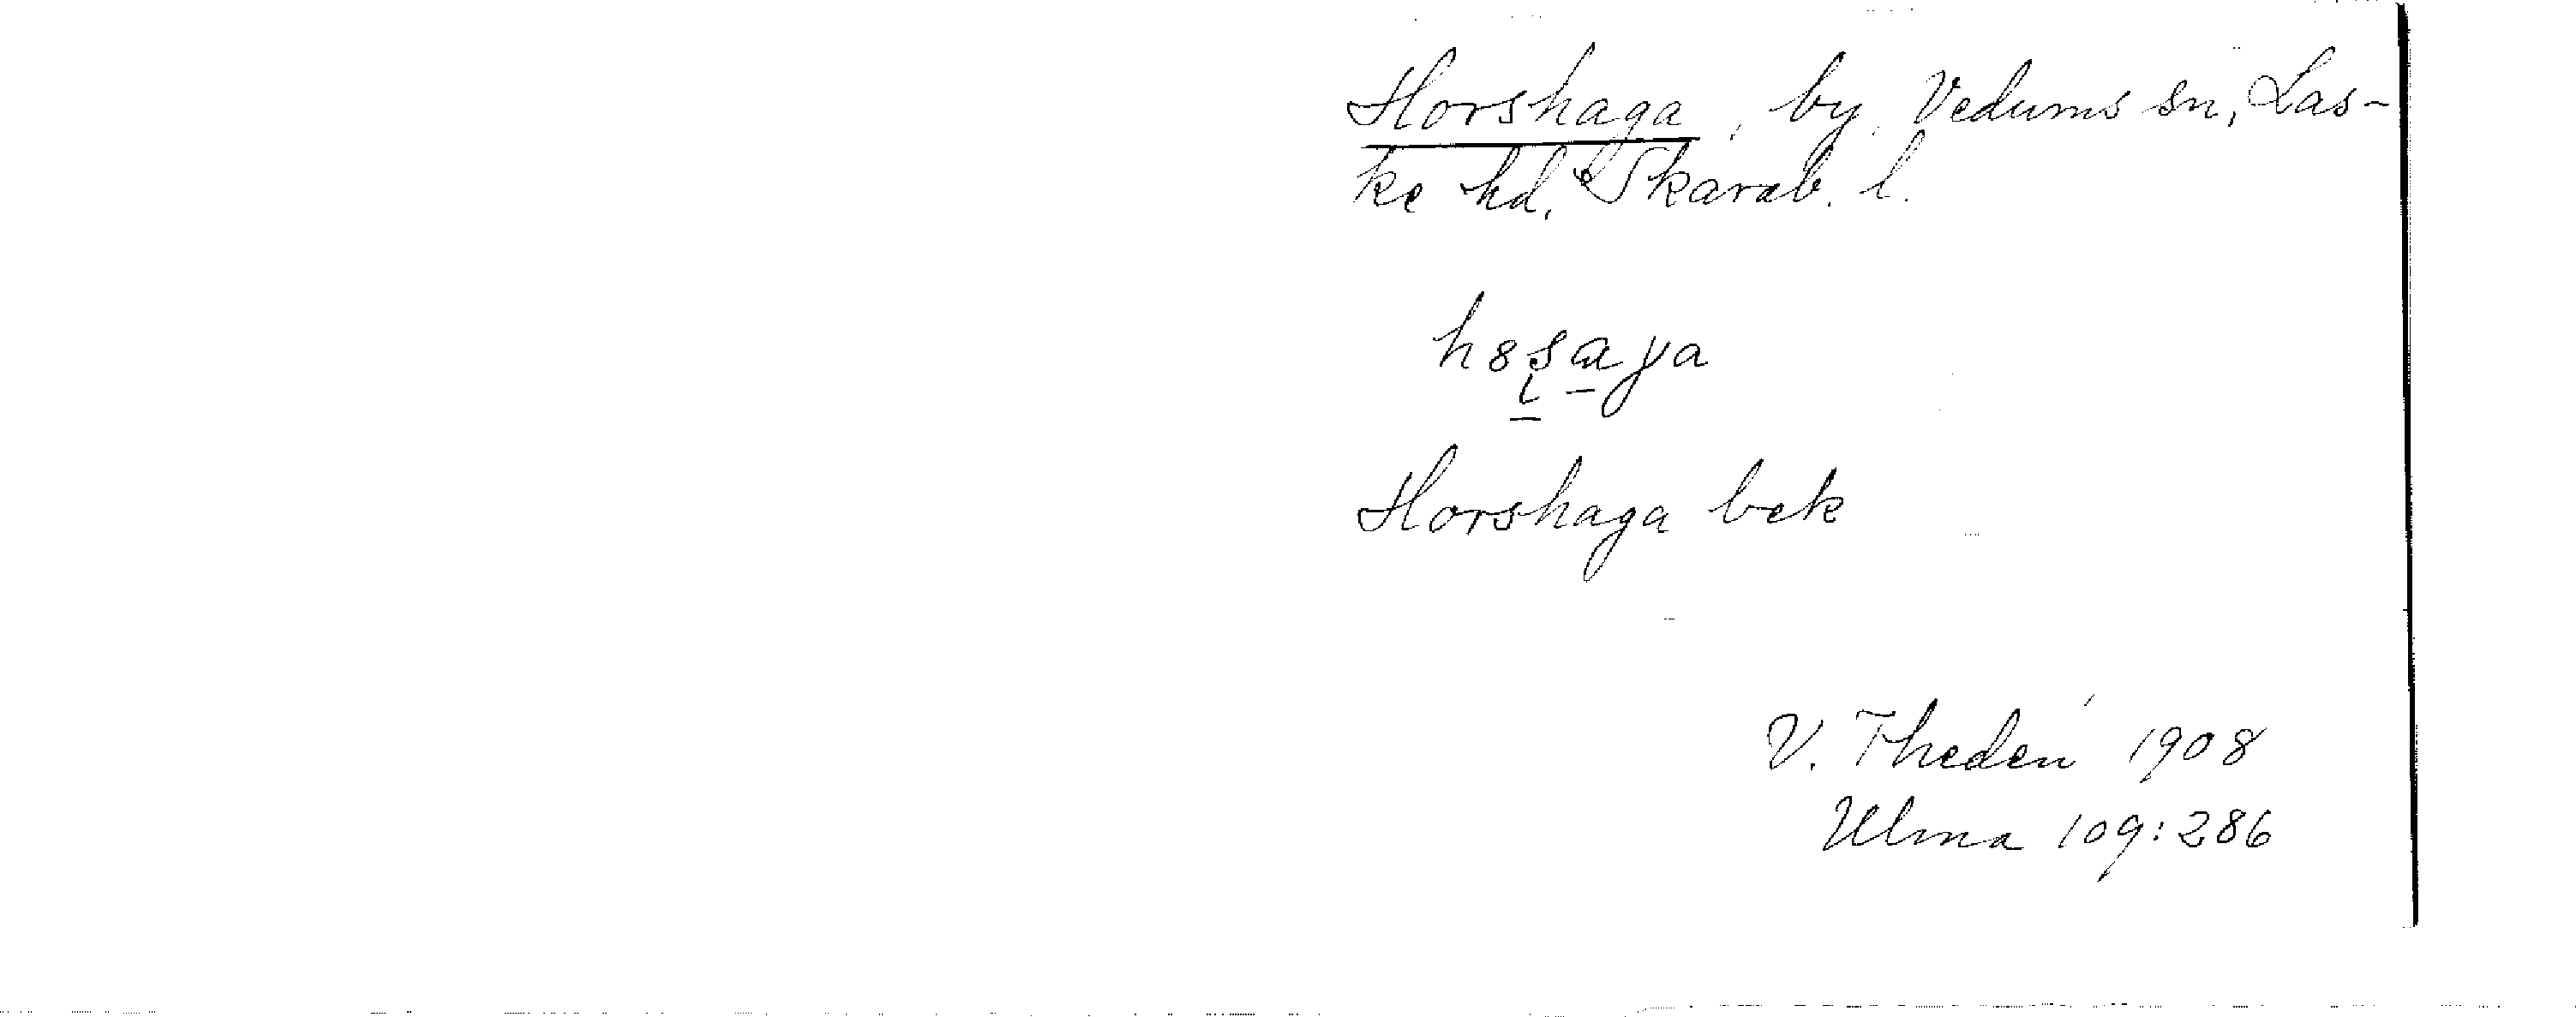 Horshaga, by, Vedums sn, Las-
ke hd, Skarab. l.
Horshaga bek
V. Thedén 1908
Ulma 109:286